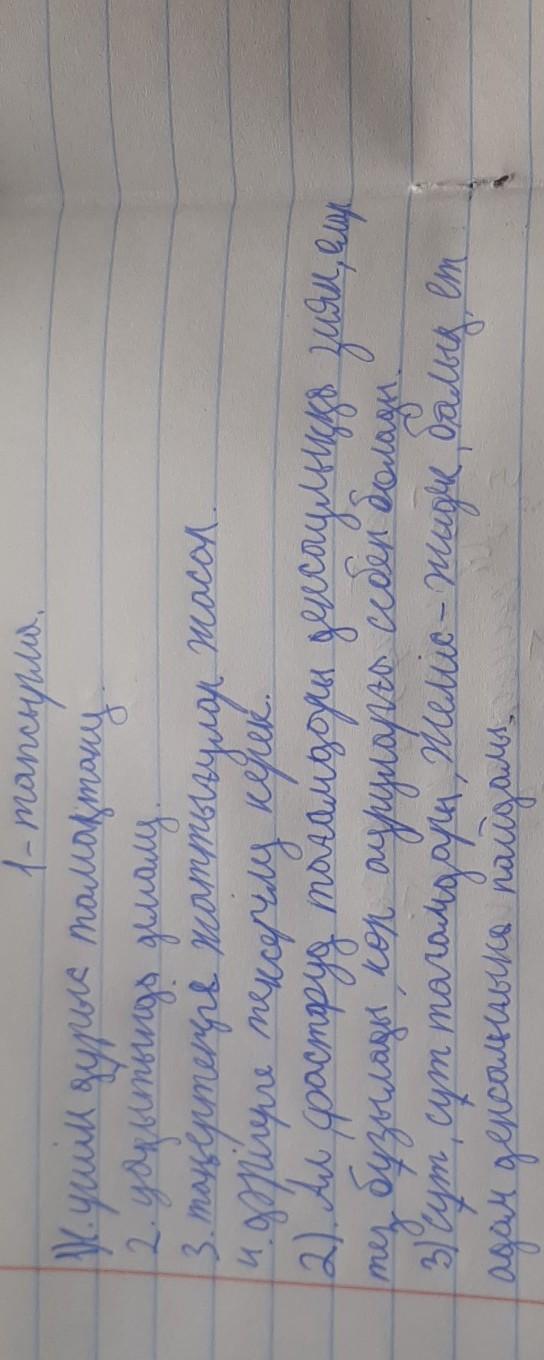 1-тапсырма.
1). үшін дұрыс тамақтану.
2. уақытында демалу.
3. таңертеңге жаттығулар жасаң.
4. дәрігерге тексерілу керек.
2). Ал фастфуд тағамдары денсаулыққа зиян, олар
тез бұзылады, көп ауруларға себеп болады.
3) Сүт, сүт тағамдары, жеміс-жидек, балық, ет
адам денсаулығына пайдалы.